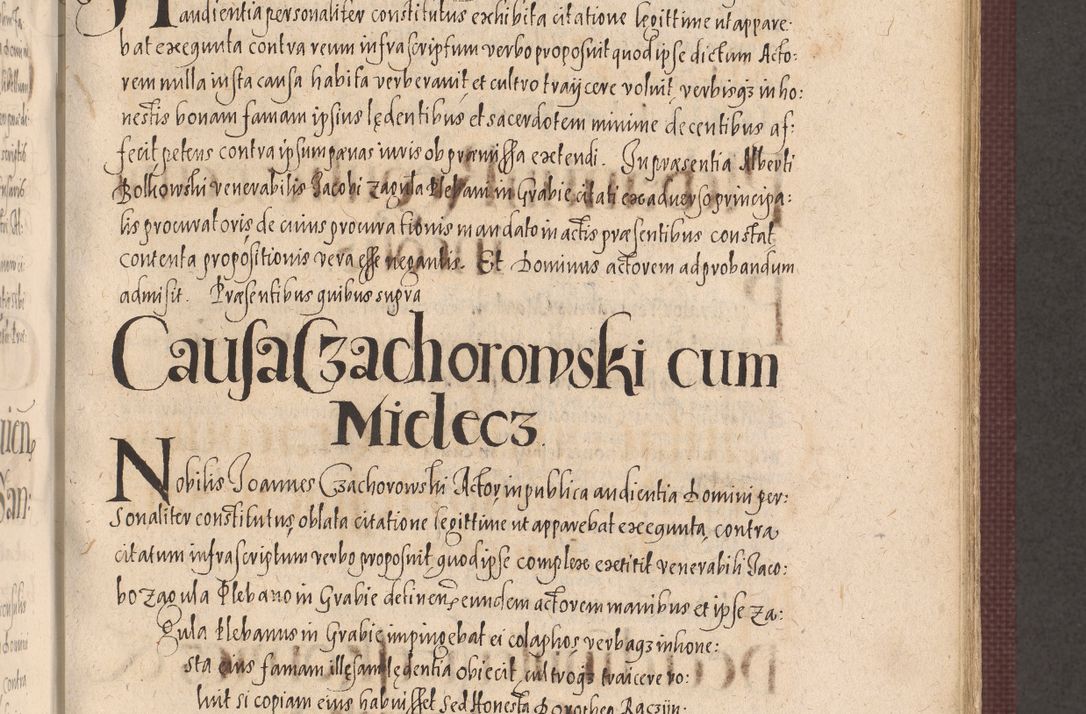 audientia personaliter constitutus exhibita citatione legittime ut appare:
bat exequuta contra reum infrascriptum verbo proposuit quod ipse dictum Acto:
rem nulla iusta causa habita verberavit et cultro traijcere voluit, verbisqz inho:
nestis bonam famam ipsius lędentibus et sacerdotem minime decentibus af:
fecit petens contra ipsum pænas iuris ob præmissa extendi. In præsentia Alberti
Bolkowski venerabilis Jacobi Zagula Plebani in Grabie citati ex adverso principa:
lis procuratoris de cuius procurationis mandato in actis præsentibus constat
contenta propositionis vera esse negantis. Et Dominus actorem ad probandum
admisit. Præsentibus quibus supra
Causa Czachorowski cum
Mielecz
Nobilis Joannes Czachorowski Actor in publica audientia Domini per:
sonaliter constitutus oblata citatione legittime ut apparebat exequuta, contra
citatum infrascriptum verbo proposuit, quod ipse complex extitit venerabili Jaco:
bo Zagula Plebano in Grabie detinens eundem actorem manibus et ipse Za:
gula Plebanus in Grabie impingebat ei colaphos verbaqz inhone:
sta eius famam illęsam lędentia obiecit, cultroqz traicere vo:
luit si copiam eius habuisset sed Honesta Dorothea Raczijn: